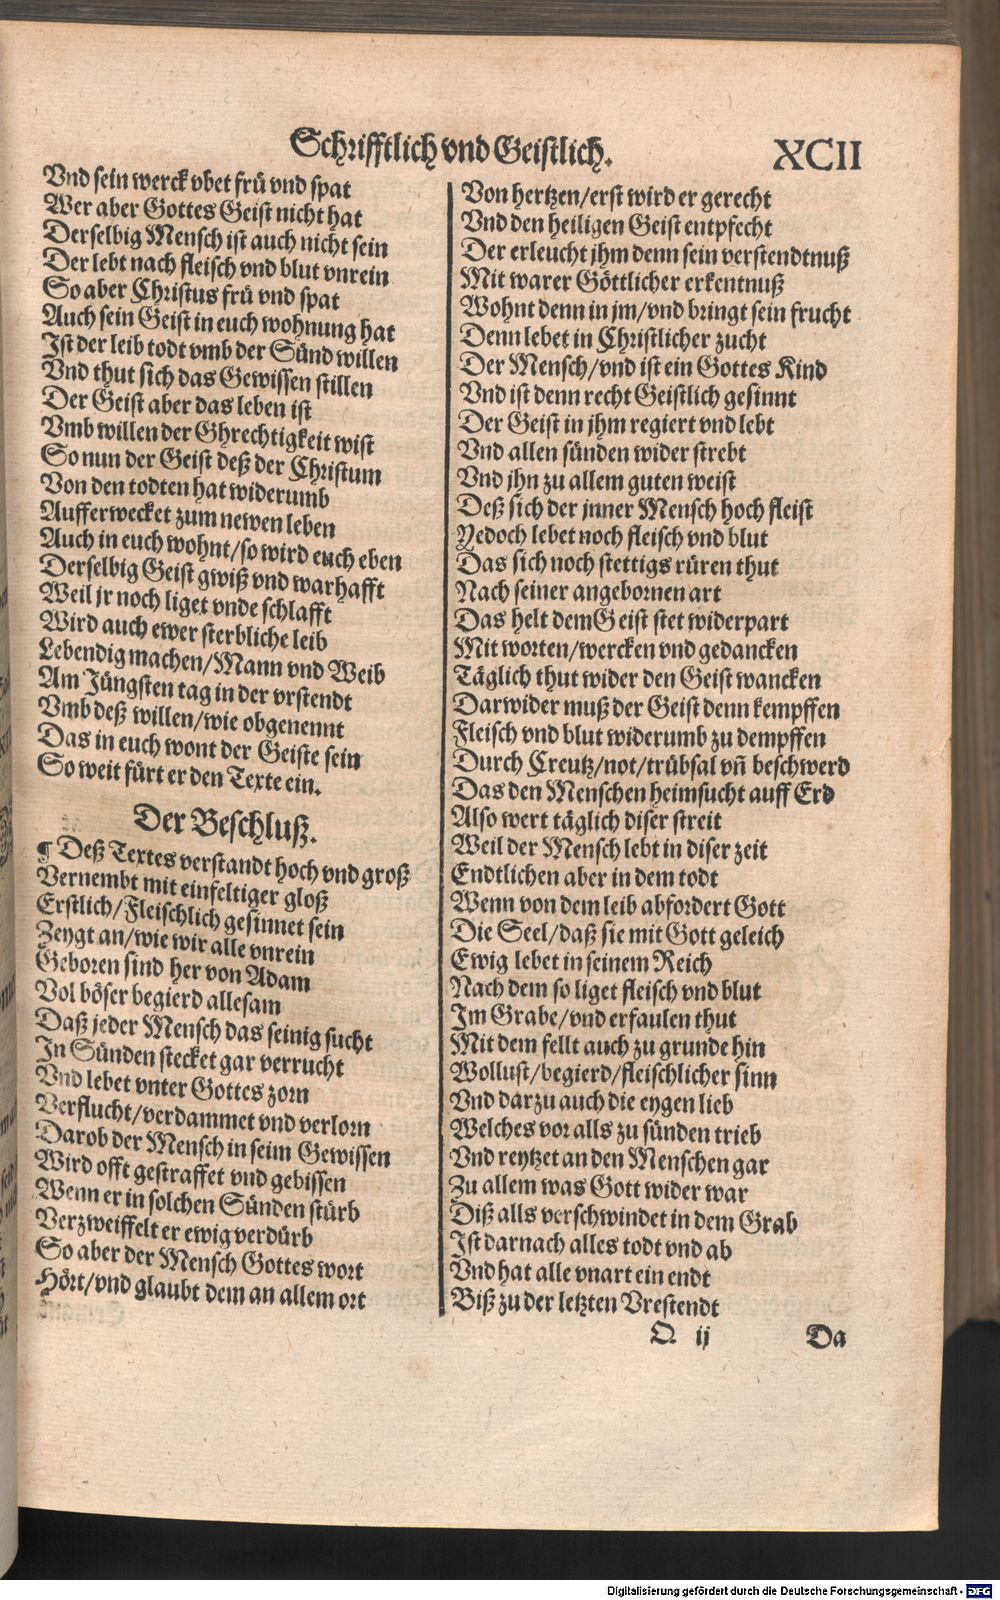 Schrifftlich vnd Geistlich. XCII
Vnd sein werck vbet frü vnd spat
Wer aber Gottes Geist nicht hat
Derselbig Mensch ist auch nicht sein
Der lebt nach fleisch vnd blut vnrein
So aber Christus frü vnd spat
Auch sein Geist in euch wohnung hat
Ist der leib todt vmb der Sünd willen
Vnd thut sich das Gewissen stillen
Der Geist aber das leben ist
Vmb willen der Ghrechtigkeit wist
So nun der Geist deß der Christum
Von den todten hat widerumb
Aufferwecket zum newen leben
Auch in euch wohnt/so wird euch eben
Derselbig Geist gwiß vnd warhafft
Weil jr noch liget vnde schlafft
Wird auch ewer sterbliche leib
Lebendig machen/Mann vnd Weib
Am Jüngsten tag in der vrstendt
Vmb deß willen/wie obgenennt
Das in euch wont der Geiste sein
So weit fürt er den Texte ein.
Der Beschluß.
¶ Deß Textes verstandt hoch vnd groß
Vernembt mit einfeltiger gloß
Erstlich/Fleischlich gesinnet sein
Zeygt an/wie wir alle vnrein
Geboren sind her von Adam
Vol böser begierd allesam
Daß jeder Mensch das seinig sucht
In Sünden stecket gar verrucht
Vnd lebet vnter Gottes zorn
Verflucht/verdammet vnd verlorn
Darob der Mensch in seim Gewissen
Wird offt gestraffet vnd gebissen
Wenn er in solchen Sünden stürb
Verzweiffelt er ewig verdürb
So aber der Mensch Gottes wort
Hört/vnd glaubt dem an allem ort
Von hertzen/erst wird er gerecht
Vnd den heiligen Geist entpfecht
Der erleucht jhm denn sein verstendtnuß
Mit warer Göttlicher erkentnuß
Wohnt denn in jm/vnd bringt sein frucht
Denn lebet in Christlicher zucht
Der Mensch/vnd ist ein Gottes Kind
Vnd ist denn recht Geistlich gesinnt
Der Geist in jhm regiert vnd lebt
Vnd allen sünden wider strebt
Vnd jhn zu allem guten weist
Deß sich der jnner Mensch hoch fleist
Yedoch lebet noch fleisch vnd blut
Das sich noch stettigs rüren thut
Nach seiner angebornen art
Das helt dem Geist stet widerpart
Mit worten/wercken vnd gedancken
Täglich thut wider den Geist wancken
Darwider muß der Geist denn kempffen
Fleisch vnd blut widerumb zu dempffen
Durch Creutz/not/trübsal vñ beschwerd
Das den Menschen heimsucht auff Erd
Also wert täglich diser streit
Weil der Mensch lebt in diser zeit
Endtlichen aber in dem todt
Wenn von dem leib abfordert Gott
Die Seel/daß sie mit Gott geleich
Ewig lebet in seinem Reich
Nach dem so liget fleisch vnd blut
Im Grabe/vnd erfaulen thut
Mit dem fellt auch zu grunde hin
Wollust/begierd/fleischlicher sinn
Vnd darzu auch die eygen lieb
Welches vor alls zu sünden trieb
Vnd reytzet an den Menschen gar
Zu allem was Gott wider war
Diß alls verschwindet in dem Grab
Ist darnach alles todt vnd ab
Vnd hat alle vnart ein endt
Biß zu der letzten Vrestendt
Q ij Da
Digitalisierung gefördert durch die Deutsche Forschungsgemeinschaft - DFG